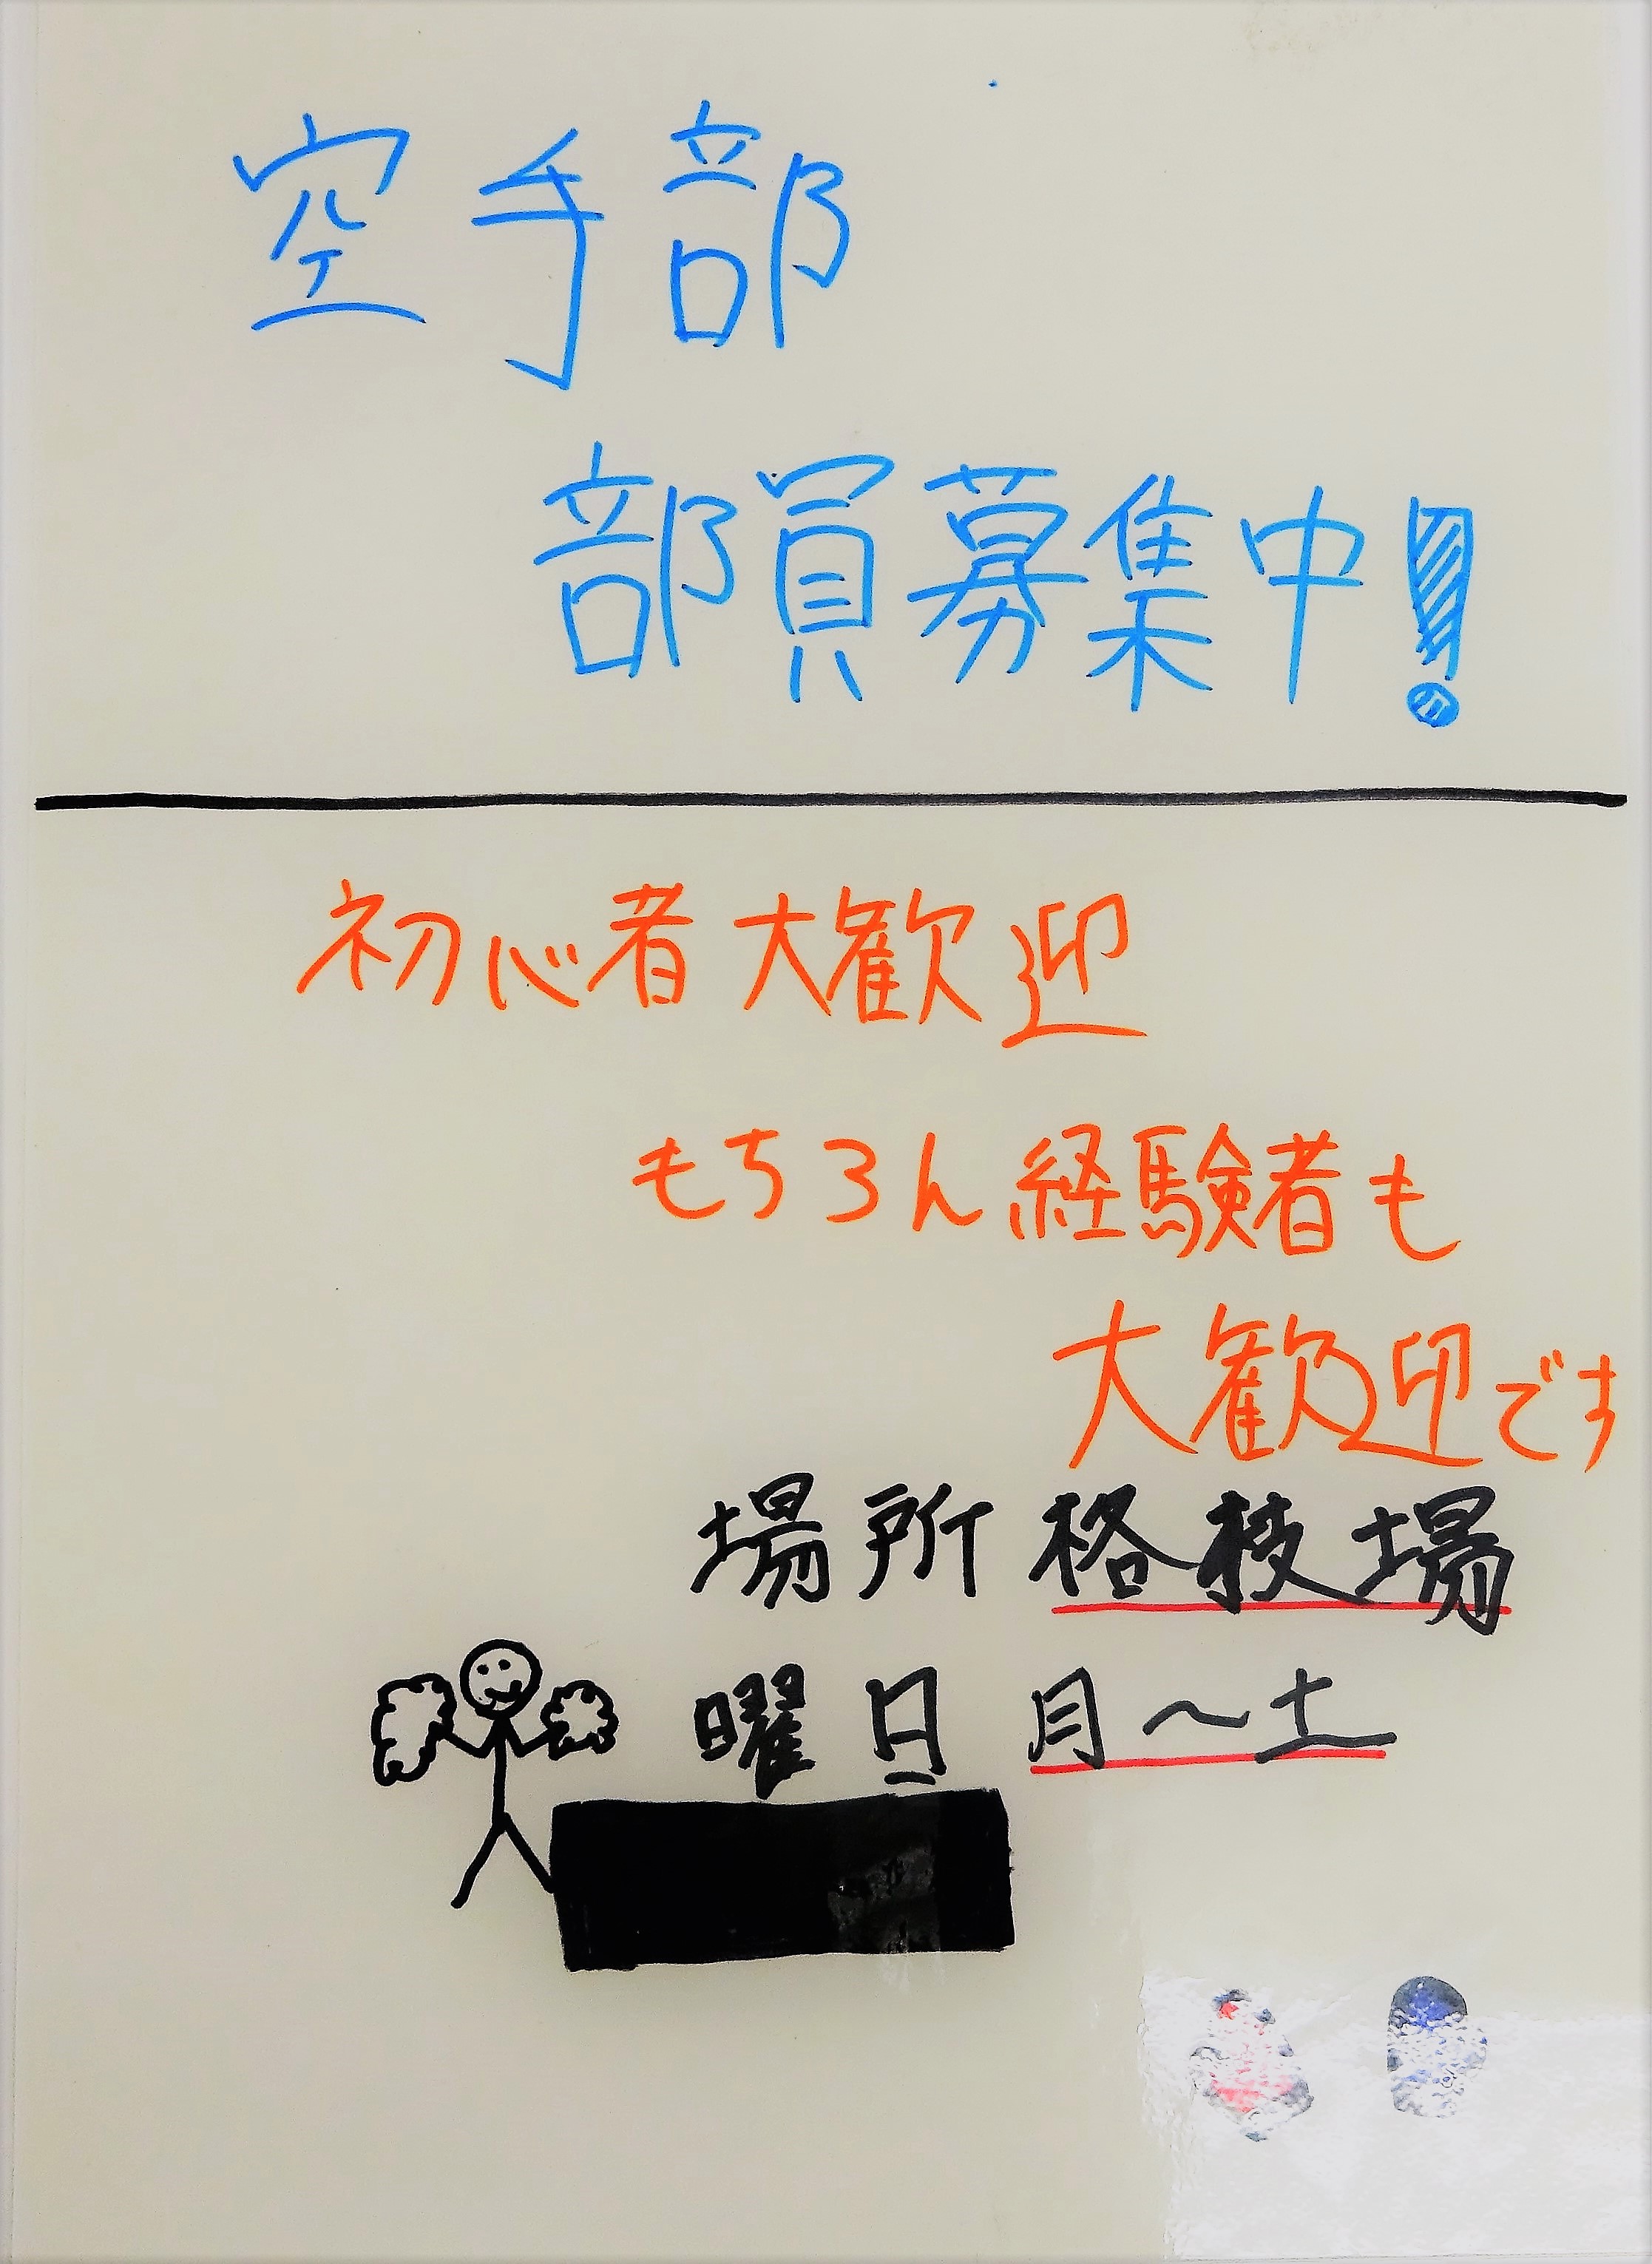 空手部
部員募集中!
初心者大歓迎
もちろん経験者も
大歓迎です
場所 格技場
曜日 月～土